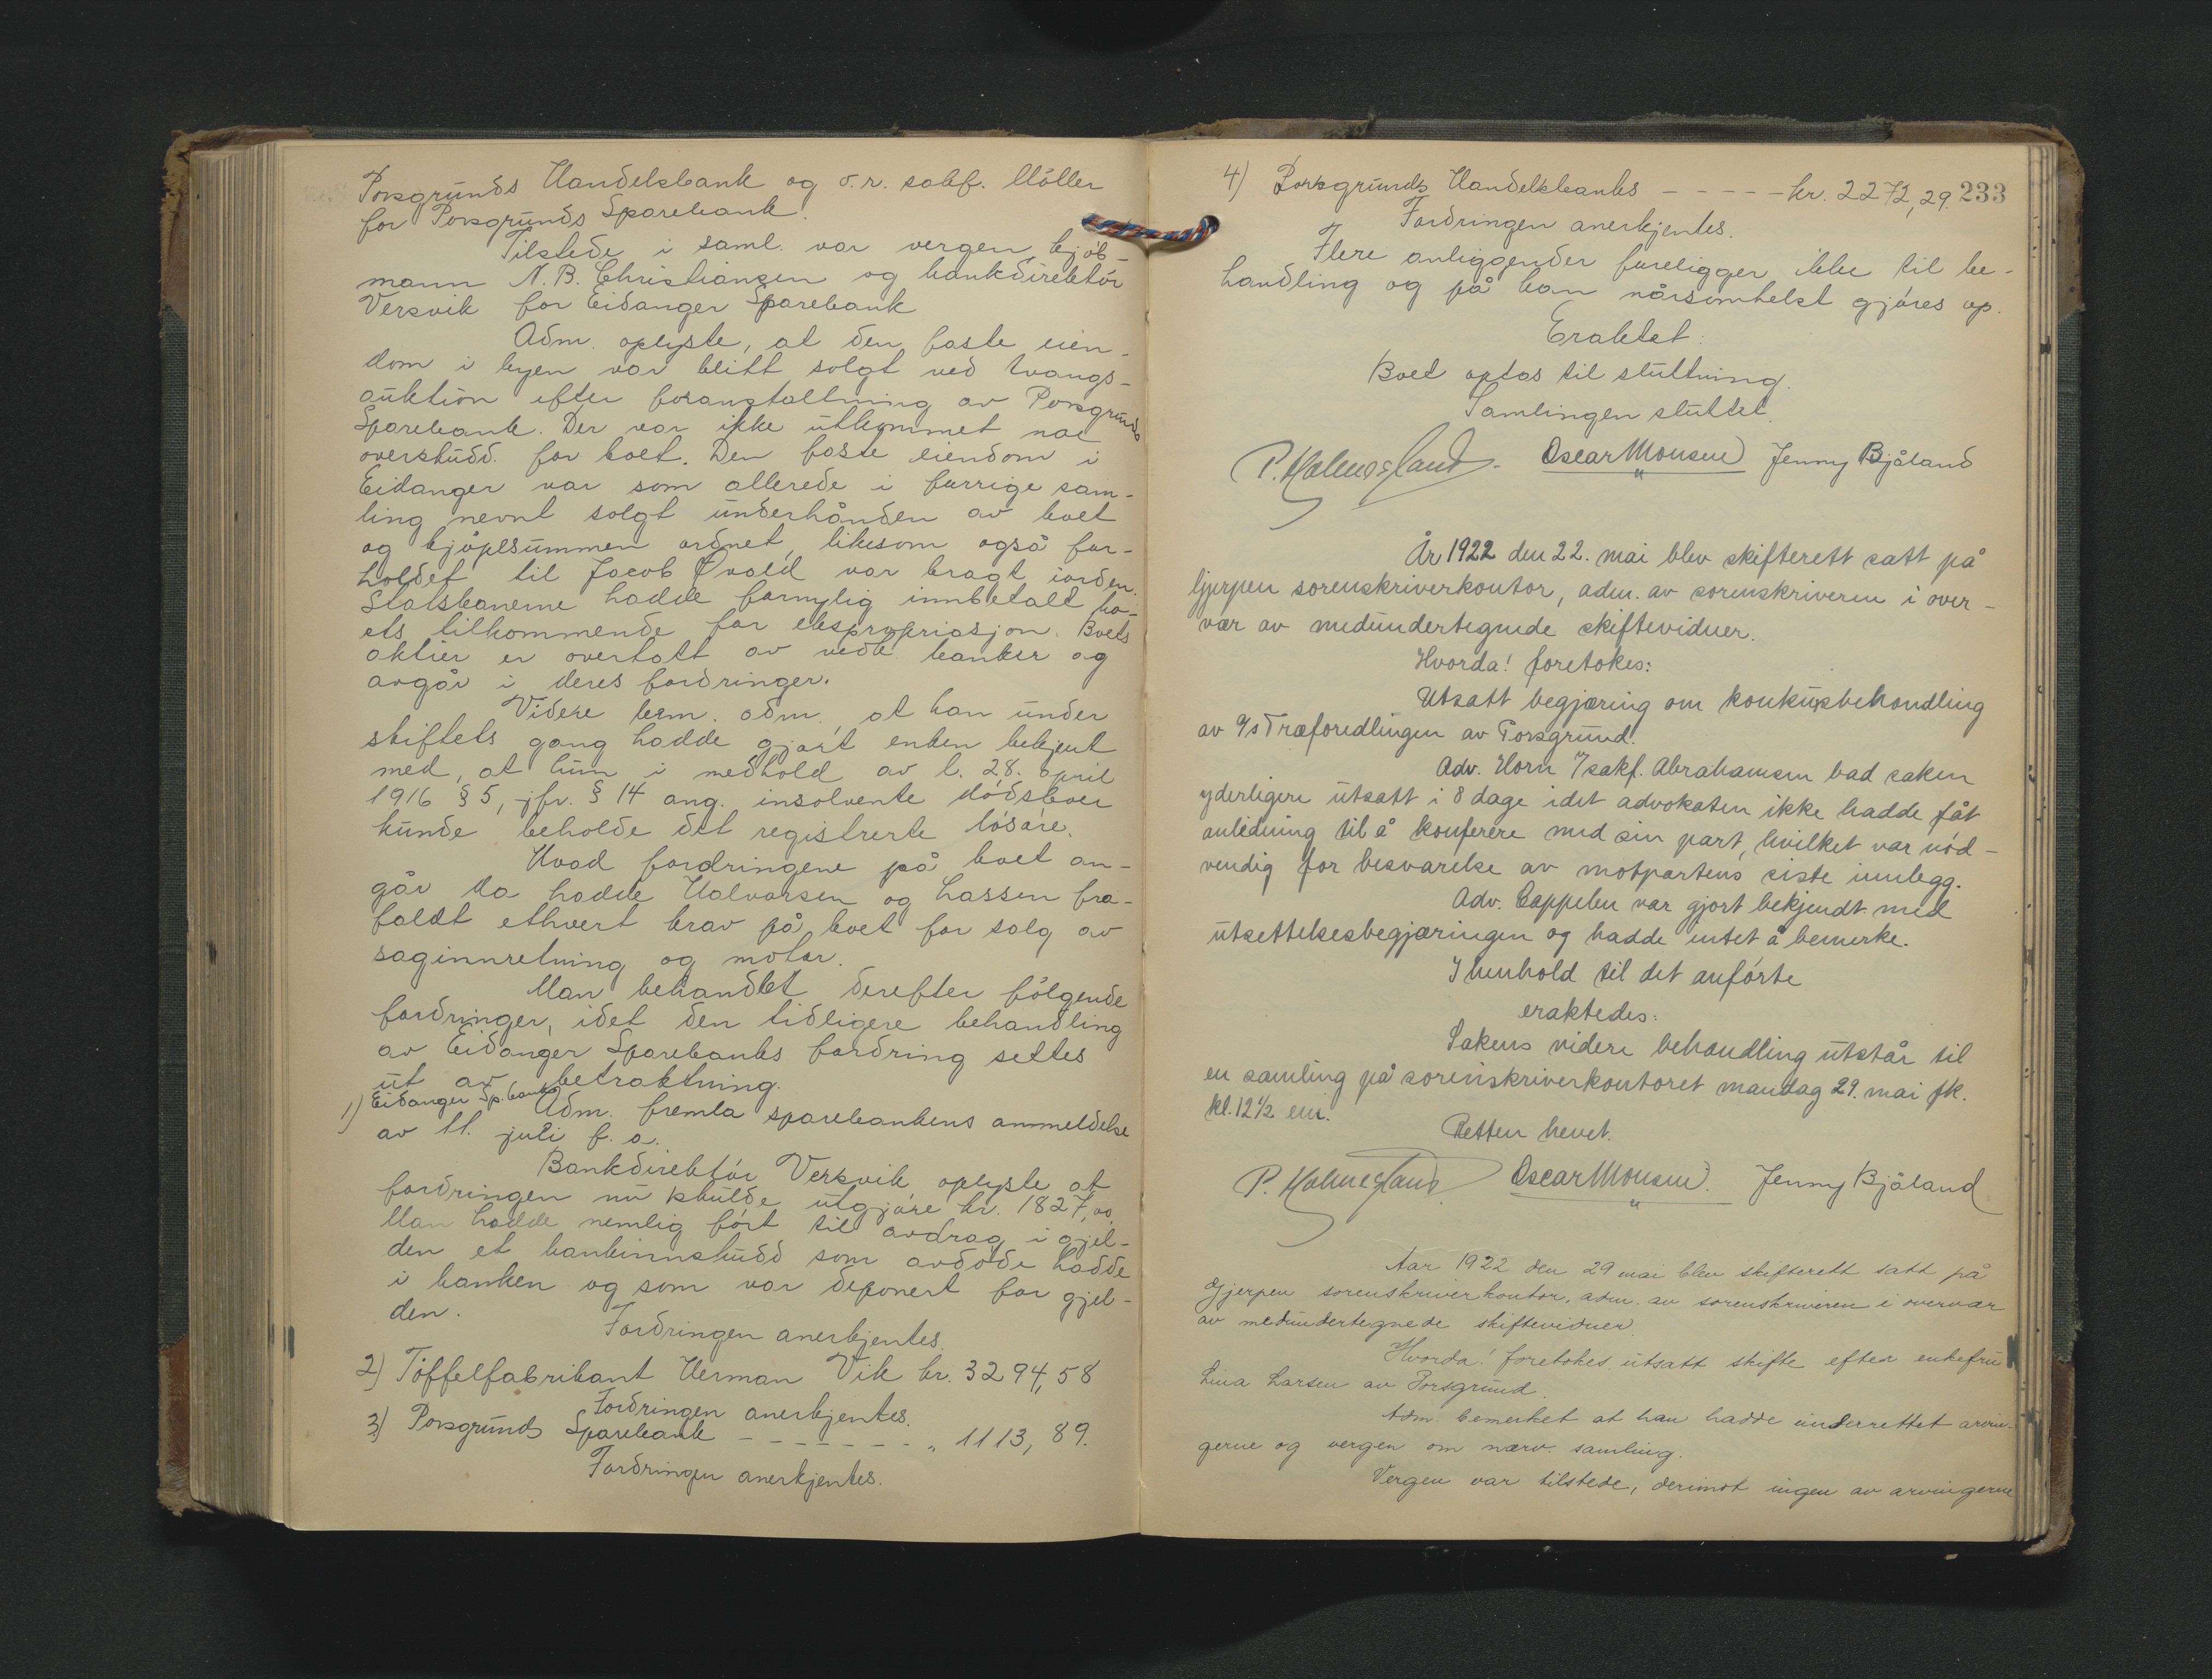 Porsgrunds Handelsbank og o.r. sakf. Möller
for Porsgrunds Sparebank.
Tilstede i saml. var vergen, kjöb-
mann N. B. Christiansen og bankdirektör
Versvik for Eidanger Sparebank
Adm. oplyste, at den faste eien-
dom i byen var blitt solgt ved tvangs-
auktion efter foranstaltning av Porsgrunds
Sparebank. Der var ikke utkommet noe
overskudd for boet. Den faste eiendom i
Eidanger var som allerede i forrige sam-
ling nevnt solgt underhånden av boet
og kjöpesummen ordnet, likesom også for-
holdet til Jacob Øvald var bragt iorden.
Statsbanerne hadde fornylig innbetalt bo-
ets tilkommende for ekspropriasjon. Boets
aktier er overtatt av vedk. banker og
avgår i deres fordringer.
Videre bem. adm. at han under
skiftets gang hadde gjort enken bekjent
med, at hun i medhold av l. 28. april
1916 § 5, jfr. § 14 ang. insolvente dödsboer
kunde beholde det registrerte lösöre.
Hvad fordringene på boet an-
går da hadde Halvorsen og Lassen fra-
faldt ethvert krav på boet for salg av
saginnretning og motor.
Man behandlet derefter fölgende
fordringer, idet den tidligere behandling
av Eidanger Sparebanks fordring settes
ut av betraktning.
1) Eidanger Sp.bank Adm. fremla sparebankens anmeldelse
av 11. juli f. a.
Bankdirektör Versvik oplyste at
fordringen nu skulde utgjöre kr. 1827,00.
Man hadde nemlig fört til avdrag i gjel-
den et bankinnskudd som avdöde hadde
i banken og som var deponert for gjel-
den.
Fordringen anerkjentes.
2) Töffelfabrikant Herman Vik kr. 3294,58
Fordringen anerkjentes.
3) Porsgrunds Sparebank - - - - - - - „ 1113, 89.
Fordringen anerkjentes.
4) Porsgrunds Handelsbanks - - - - - kr. 2272,29 233
Fordringen anerkjentes.
Flere anliggender foreligger ikke til be-
handling og på kan nårsomhelst gjöres op.
Eraktet:
Boet optas til sluttning.
Samlingen sluttet.
P. Holmesland. Oscar Monsen Jenny Bjåland
År 1922 den 22. mai blev skifterett satt på
Gjerpen sorenskriverkontor, adm. av sorenskriveren i over-
vær av medundertegnede skiftevidner.
Hvorda! foretokes:
Utsatt begjæring om konkursbehandling
av A/s Træforedlingen av Porsgrund.
Adv. Horn v/ sakf. Abrahamsen bad saken
yderligere utsatt i 8 dage idet advokaten ikke hadde fåt
anledning til å konferere med sin part, hvilket var nöd-
vendig for besvarelse av motpartens siste innlegg.
Adv. Cappelen var gjort bekjendt med
utsettelsesbegjæringen og hadde intet å bemerke.
I henhold til det anförte
eraktedes:
Sakens videre behandling utstår til
en samling på sorenskriverkontoret mandag 29. mai fk.
kl. 12 1/2 em.
Retten hevet.
P. Holmesland Oscar Monsen. Jenny Bjåland
Aar 1922 den 29 mai blev skifterett satt på
Gjerpen sorenskriverkontor, adm. av sorenskriveren i overvær
av medundertegnede skiftevidner.
Hvorda! foretokes utsatt skifte efter enkefru
Lina Larsen av Porsgrund.
Adm. bemerket at han hadde underrettet arvin-
gerne og vergen om nærv. samling.
Vergen var tilstede, derimot ingen av arvingerne